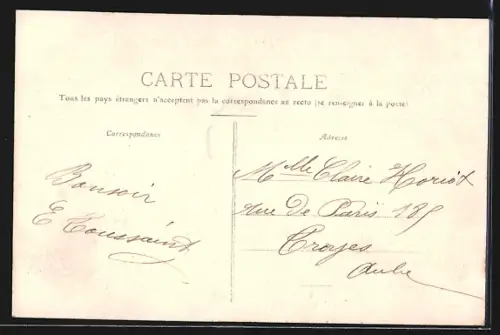 CARTE POSTALE
Tous les pays étrangers n'acceptent pas la correspondance au recto (se renseigner à la poste)
Correspondance
Adresse
Bonsoir
E Toussaint
Mlle Claire Horiot
rue de Paris 185
Troyes
Aube